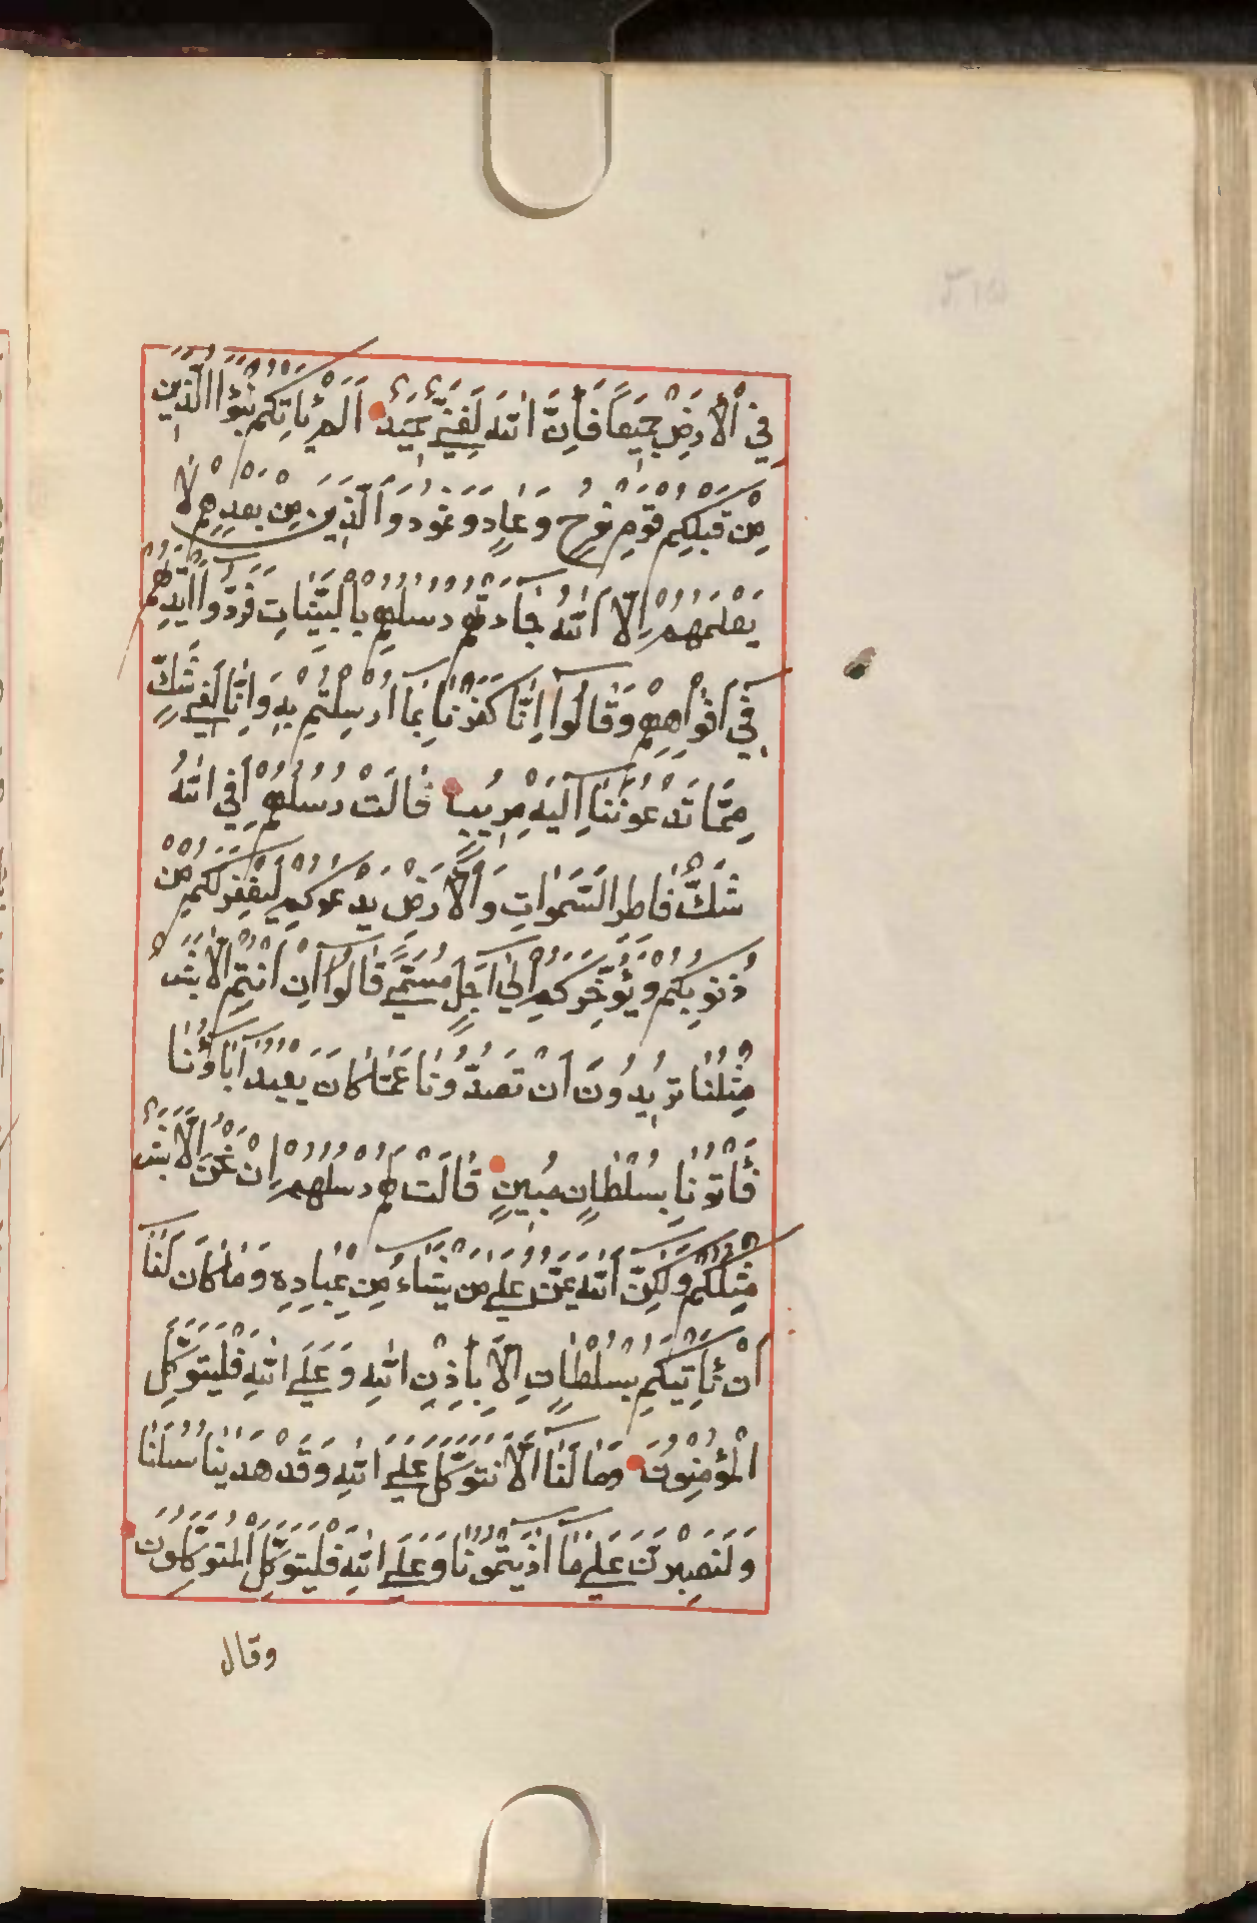 فِي الْأَرْضِ جَمِيعًا فَإِنَّ اللَّهَ لَغَنِيٌّ حَمِيدٌ أَلَمْ يَأْتِكُمْ نَبَؤُا الَّذِينَ
مِنْ قَبْلِكُمْ قَوْمِ نُوحٍ وَعَادٍ وَثَمُودَ وَالَّذِينَ مِنْ بَعْدِهِمْ لَا
يَعْلَمُهُمْ إِلَّا اللَّهُ جَاءَتْهُمْ رُسُلُهُمْ بِالْبَيِّنَاتِ فَرَدُّوا أَيْدِيَهُمْ
فِي أَفْوَاهِهِمْ وَقَالُوا إِنَّا كَفَرْنَا بِمَا أُرْسِلْتُمْ بِهِ وَإِنَّا لَفِي شَكٍّ
مِمَّا تَدْعُونَنَا إِلَيْهِ مُرِيبٍ قَالَتْ رُسُلُهُمْ أَفِي اللَّهِ
شَكٌّ فَاطِرِ السَّمَوَاتِ وَالْأَرْضِ يَدْعُوكُمْ لِيَغْفِرَ لَكُمْ مِنْ
ذُنُوبِكُمْ وَيُؤَخِّرَكُمْ إِلَى أَجَلٍ مُسَمًّى قَالُوا إِنْ أَنْتُمْ إِلَّا بَشَرٌ
مِثْلُنَا تُرِيدُونَ أَنْ تَصُدُّونَا عَمَّا كَانَ يَعْبُدُ آبَاؤُنَا
فَأْتُونَا بِسُلْطَانٍ مُبِينٍ قَالَتْ لَهُمْ رُسُلُهُمْ إِنْ نَحْنُ إِلَّا بَشَرٌ
مِثْلُكُمْ وَلَكِنَّ اللَّهَ يَمُنُّ عَلَى مَنْ يَشَاءُ مِنْ عِبَادِهِ وَمَا كَانَ لَنَا
أَنْ نَأْتِيَكُمْ بِسُلْطَانٍ إِلَّا بِإِذْنِ اللَّهِ وَعَلَى اللَّهِ فَلْيَتَوَكَّلِ
الْمُؤْمِنُونَ وَمَا لَنَا أَلَّا نَتَوَكَّلَ عَلَى اللَّهِ وَقَدْ هَدَيْنَا سُبُلَنَا
وَلَنَصْبِرَنَّ عَلَى مَا آذَيْتُمُونَا وَعَلَى اللَّهِ فَلْيَتَوَكَّلِ الْمُتَوَكِّلُونَ
وقال